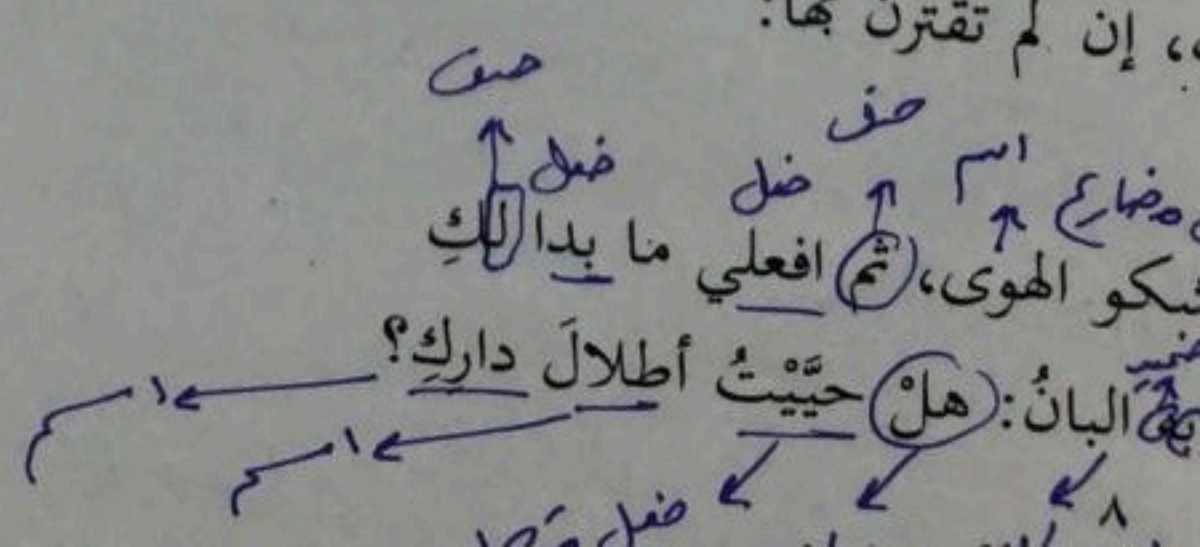 ، إن لم تقترن بها:
حرف
حرف
فعل
فعل
اسم
مضارع
الهوى، ثم افعلي ما بدا لكِ
البانُ: هلْ حيَّيْتُ أطلالَ داركِ؟
اسم
اسم
فعل
٨